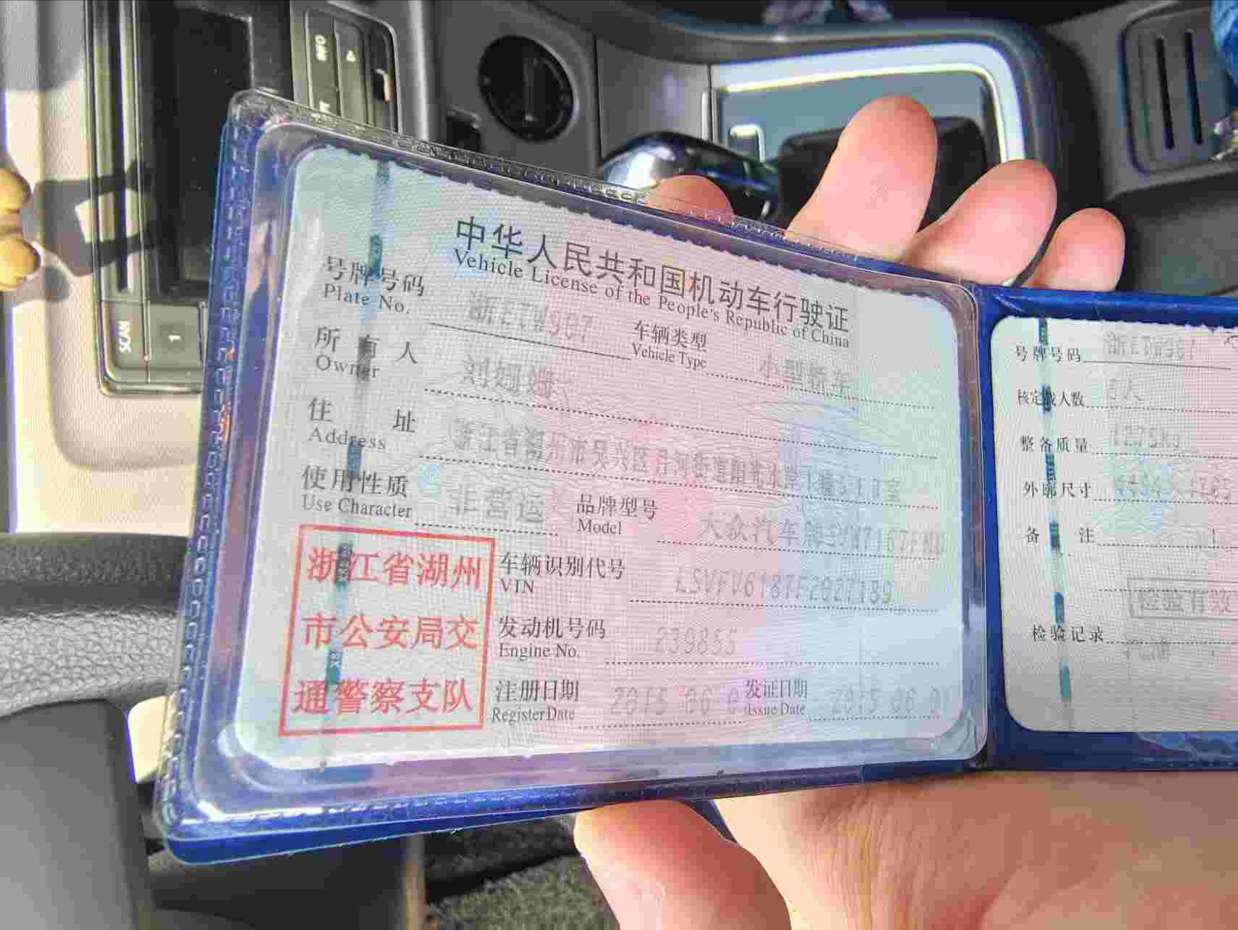 中华人民共和国机动车行驶证
Vehicle License of the People's Republic of China
号牌号码
Plate No.
车辆类型 小型轿车
Vehicle Type
所有人 刘姗姗
Owner
住址 浙江省湖州市吴兴区月河街道
Address
使用性质 非营运
Use Character
品牌型号 大众汽车牌
Model
浙江省湖州
市公安局交
通警察支队
车辆识别代号
VIN
发动机号码 239855
Engine No.
注册日期 2015 06 0
Register Date
发证日期 2015 06 01
Issue Date
号牌号码
核定载人数 5人
整备质量 1275Kg
外廓尺寸
备注
检验有效
检验记录
SCAN
1